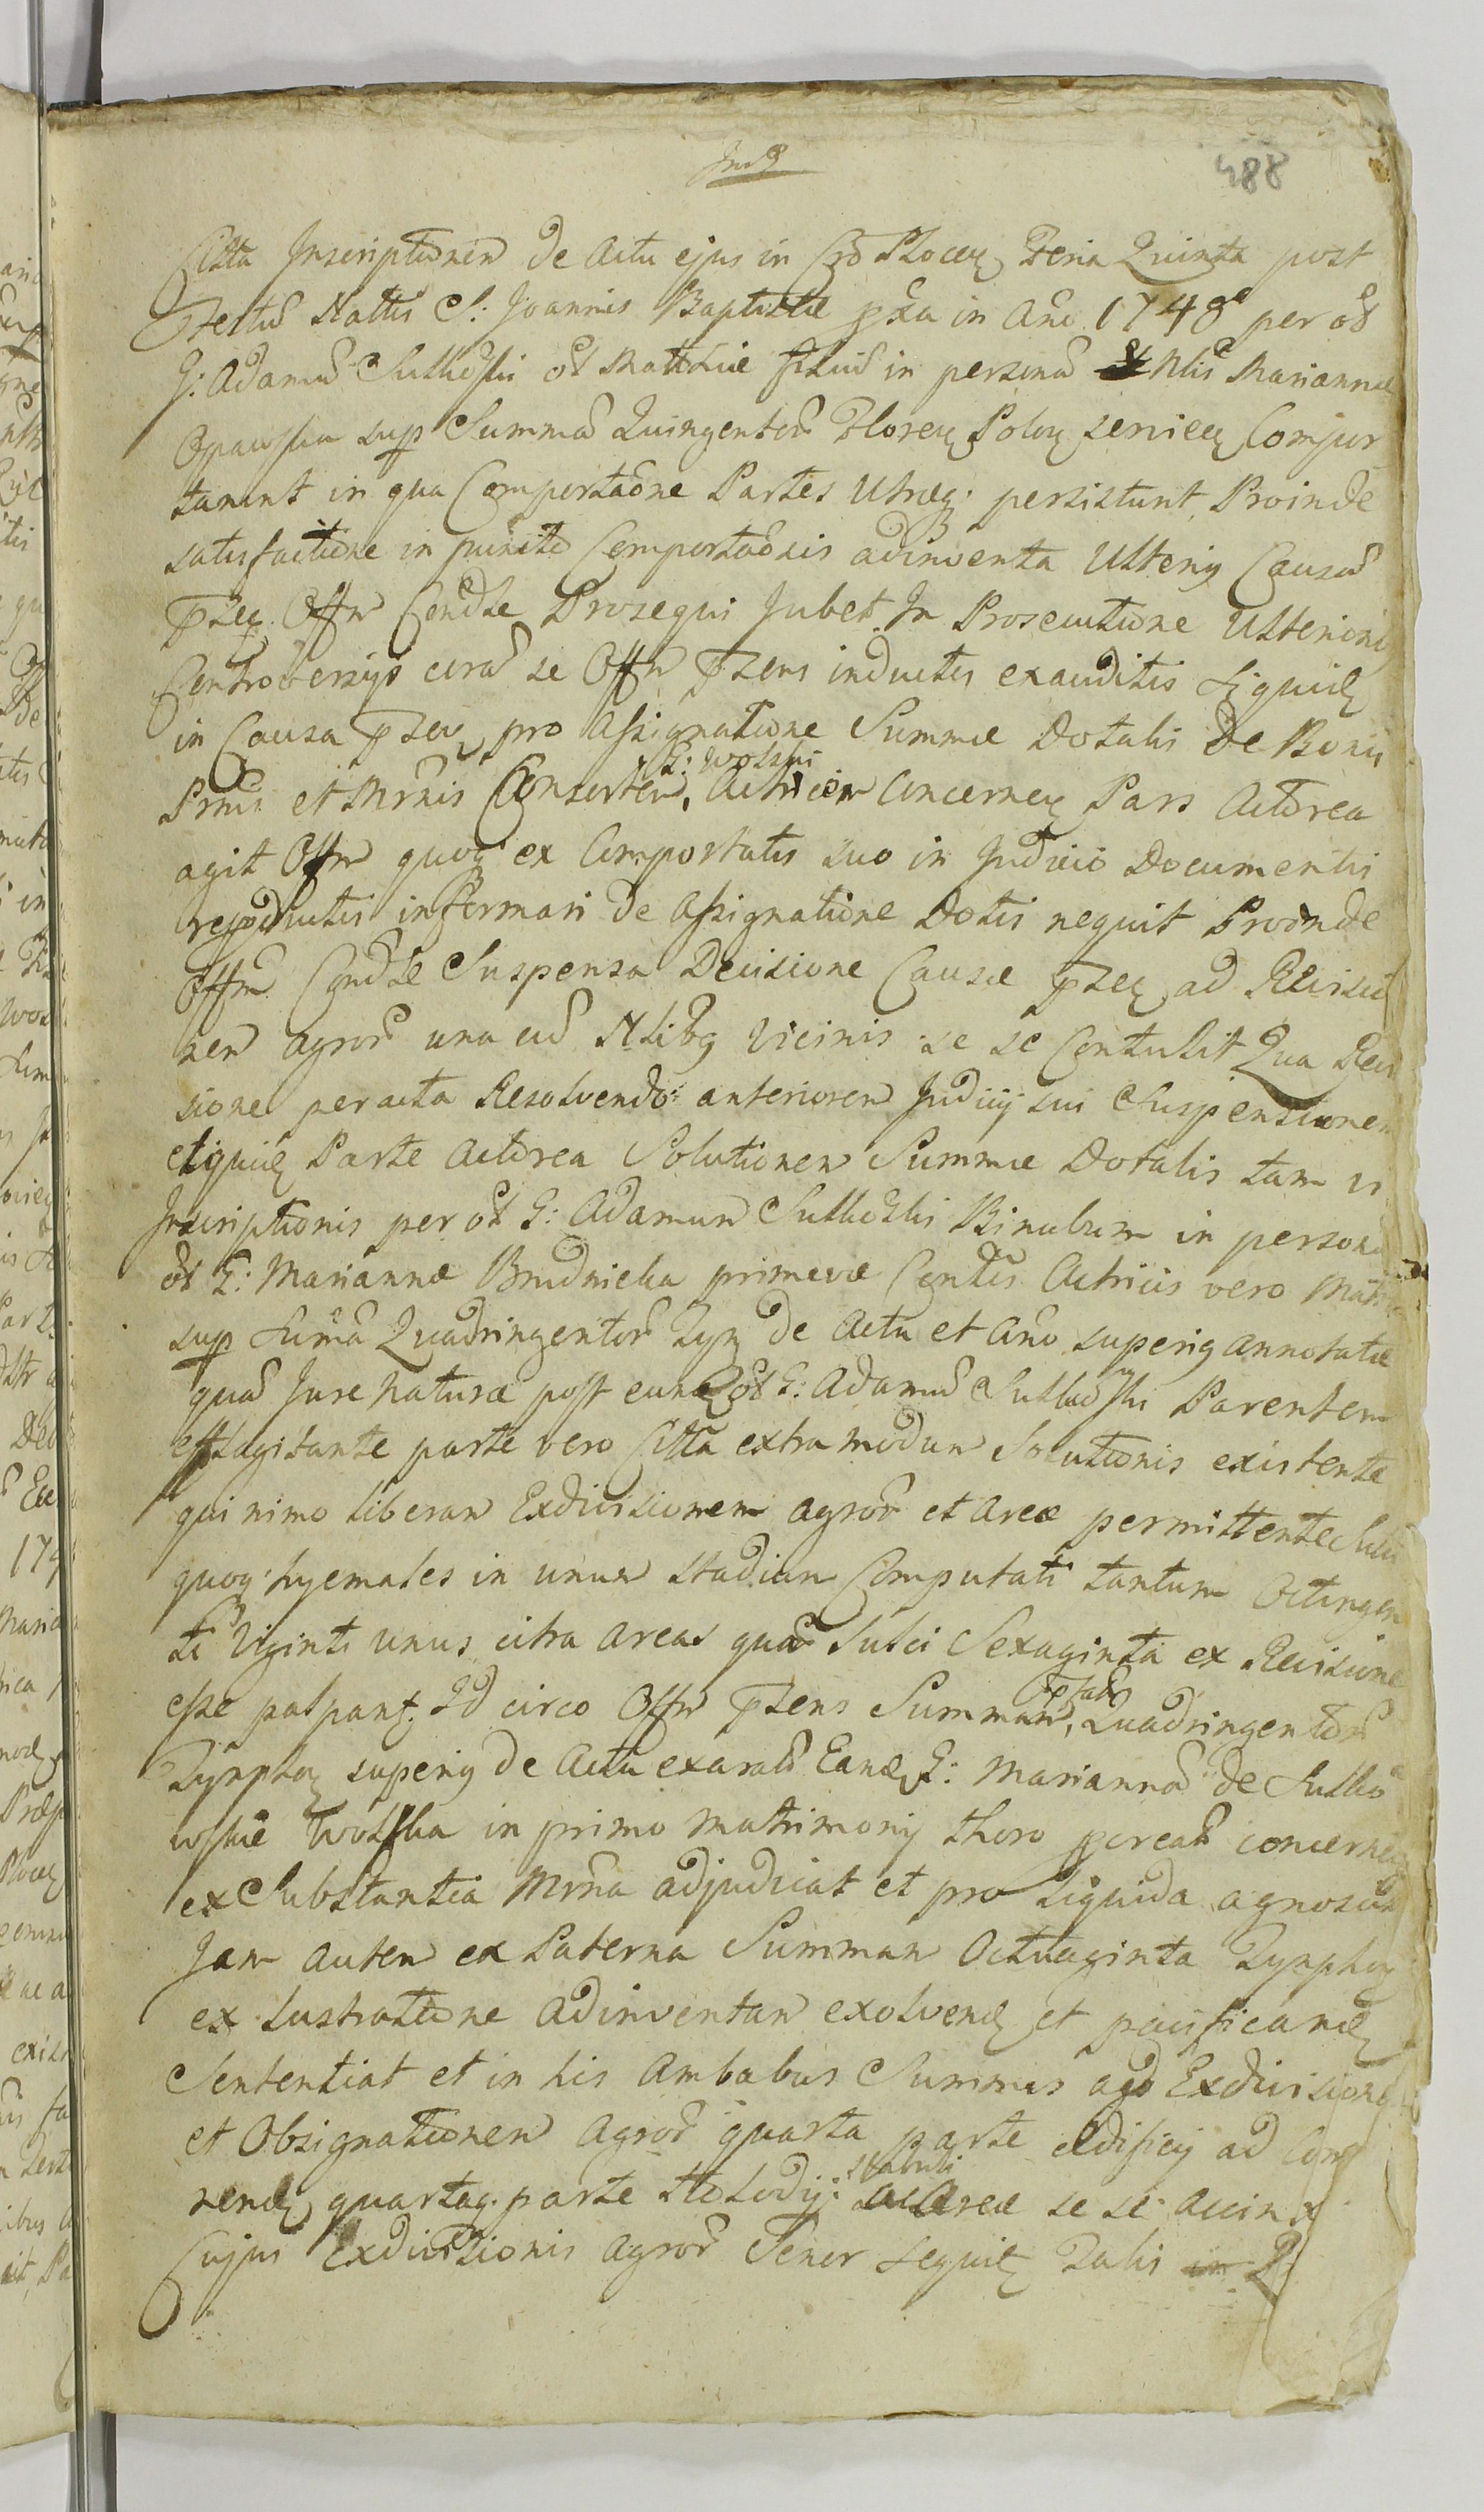 488
Citta Inscriptionem de Actu ejus in Cro Plocen Feria Quinta post
Festum Nattis S: Joannis Baptistæ pxa in Ano 1748º per ol
G: Adamum Sulkoski ol Mathiæ filium in personam Nlis Mariannæ
super Summam Quingentor Floren Polon seriem Compor
tarunt in qua Comportaone Partes Utræq. persistunt, Proinde
satisfactione in puncto Comportaonis adinventa Ulterig Causam
pzen. Offm Condle Prosequi Jubet. In Prosecutione Ulteriorig
Controversijs coram se Offm pzens inductis exauditis Siquid
in Causa pzen pro Assignatione Summæ Dotalis De Bonis
G: Wolski
et Mrnis Consortem, Actricem Concernen Pars Actorea
agit Offm quoq ex Comportatis suo in Judicio Documentis
reproductis informari de Assignatione Dotis nequit Proinde
Offm Condle Suspensa Decisione Causæ pzen ad Revisio
nem agror una cum Nlibg Vicinis se se Contulit Qua Revi
sione peracta Resolvendo anteriorem Judicij sui Suspensionem
Parte Actorea Solutionem Summæ Dotalis tam vi
Inscriptionis per ol G: Adamum Sulkoski Binubum in persona
ol G: Mariannæ Brudnicka primevæ Contis Actricis vero Matris
sup Sumã Quadringentor Tyn de Actu et Ano superig annotatæ
quam Jure Naturæ post eund ol G: Adamum Sulkoski Parentem
efflagitante parte vero Citta extra modum Solutionis existente
qui nimo liberam Exdivisionem agror et areæ permittente Sulci
quoq hyemales in unum stadium Computati tantum Octingen
ti Viginti unus citra areas quar Sulci Sexaginta ex Revisione
esse palpant. Id circo Offm pzens Summam, Quadringentor
Tynphor superig de Actu exarat Eand G: Mariannam de Sulko
wskie Wolska in primo matrimonij thoro pcreat concernen
ex Substantia Mrna adjudicat et pro liquida agnoscit
Jam autem ex Paterna Summam Octuaginta Tynphor
ex lustratione adinventam exolvend et pacificand
Sententiat et in his Ambabus Summis ad Exdivisionem
et Obsignationem Agror quarta parte ædificij ad
rend quartaq. parte Holodij: Areæ se se accinx
Cujus Exdivisionis agror Tenor sequit Talis